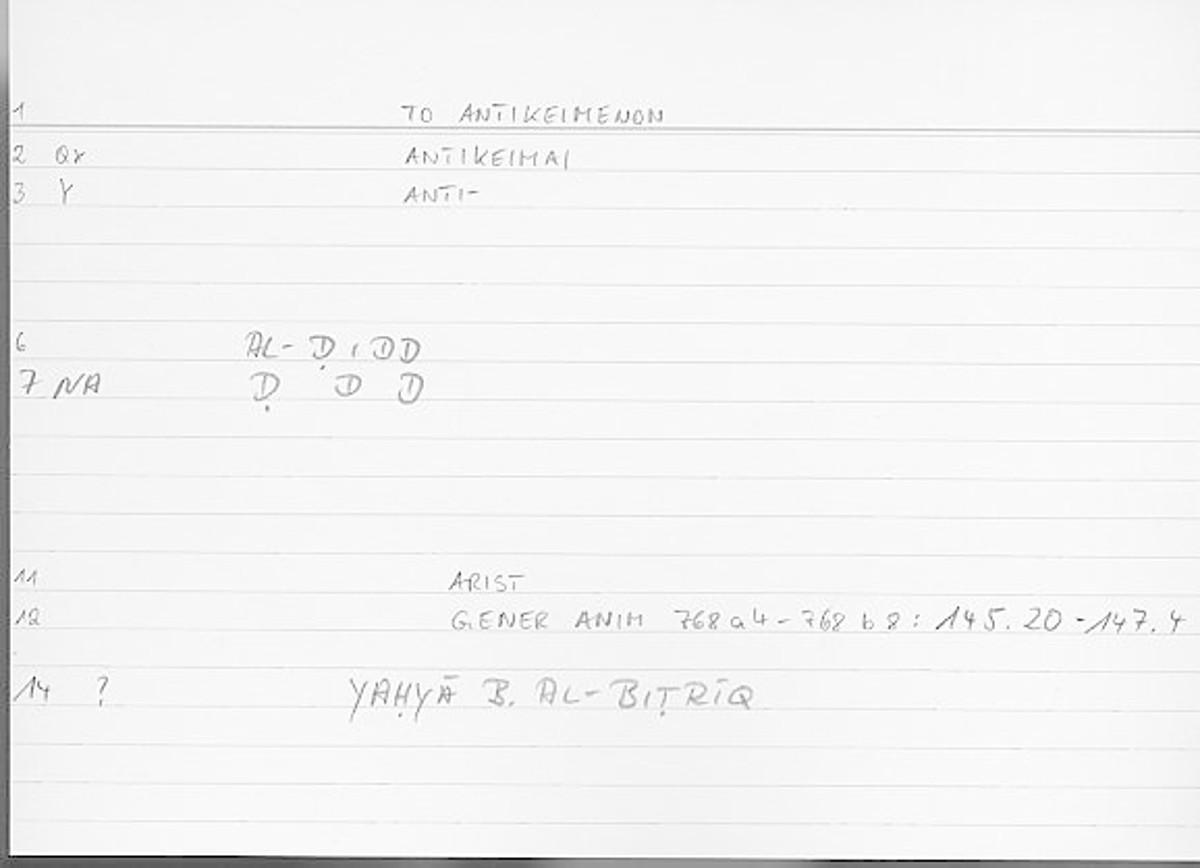 1 TO ANTIKEIMENON
2 Qx ANTIKEIMAI
3 Y ANTI-
6 AL-ḌIDD
7 NA Ḍ D D
11 ARIST
12 GENER ANIM 768 a 4 - 768 b 8 : 145.20 - 147.4
14 ? YAḤYĀ B. AL-BIṬRĪQ